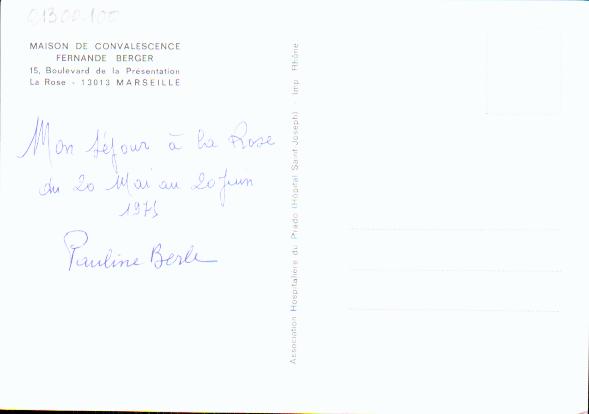 MAISON DE CONVALESCENCE
FERNANDE BERGER
15, Boulevard de la Présentation
La Rose - 13013 MARSEILLE
Mon séjour à la Rose
du 20 Mai au 20 Juin
Pauline
Association Hospitalière du Prado (Hôpital Saint Joseph) - Imp. Rhône